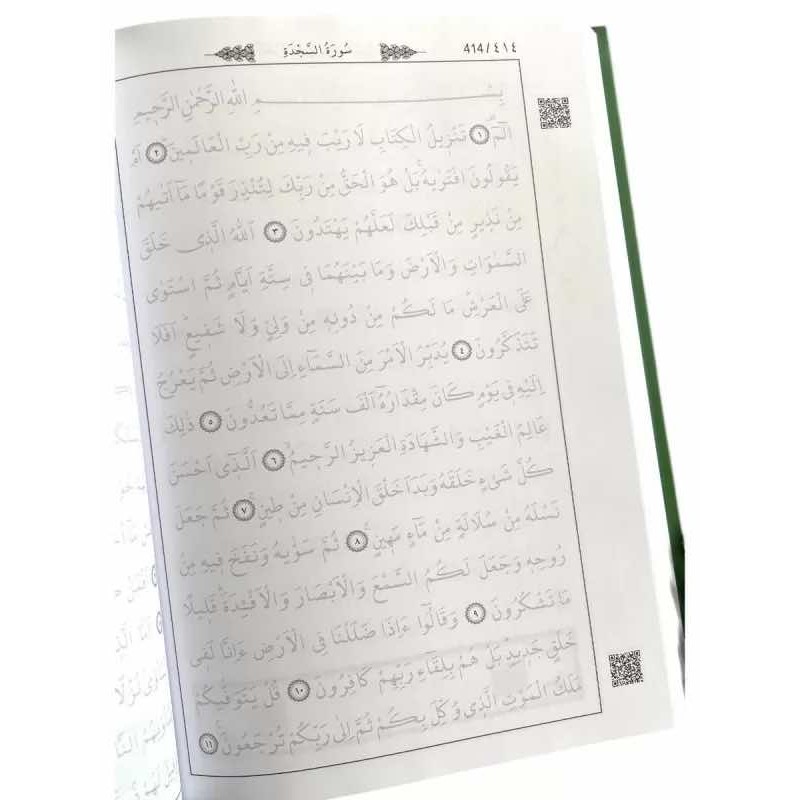 ٤١٤ / 414 سُورَةُ السَّجْدَةِ
بِسْمِ اللّٰهِ الرَّحْمٰنِ الرَّحِيمِ
الٓمٓ ﴿١﴾ تَنْزِيلُ الْكِتَابِ لَا رَيْبَ فِيهِ مِنْ رَبِّ الْعَالَمِينَ ﴿٢﴾ اَمْ
يَقُولُونَ افْتَرٰيهُ بَلْ هُوَ الْحَقُّ مِنْ رَبِّكَ لِتُنْذِرَ قَوْمًا مَٓا اَتٰيهُمْ
مِنْ نَذِيرٍ مِنْ قَبْلِكَ لَعَلَّهُمْ يَهْتَدُونَ ﴿٣﴾ اَللّٰهُ الَّذِى خَلَقَ
السَّمٰوَاتِ وَالْاَرْضَ وَمَا بَيْنَهُمَا فِى سِتَّةِ اَيَّامٍ ثُمَّ اسْتَوٰى
عَلَى الْعَرْشِ مَا لَكُمْ مِنْ دُونِهِ مِنْ وَلِىٍّ وَلَا شَفِيعٍ اَفَلَا
تَتَذَكَّرُونَ ﴿٤﴾ يُدَبِّرُ الْاَمْرَ مِنَ السَّمَٓاءِ اِلَى الْاَرْضِ ثُمَّ يَعْرُجُ
اِلَيْهِ فِى يَوْمٍ كَانَ مِقْدَارُهُٓ اَلْفَ سَنَةٍ مِمَّا تَعُدُّونَ ﴿٥﴾ ذٰلِكَ
عَالِمُ الْغَيْبِ وَالشَّهَادَةِ الْعَزِيزُ الرَّحِيمُ ﴿٦﴾ اَلَّذِٓى اَحْسَنَ
كُلَّ شَىْءٍ خَلَقَهُ وَبَدَاَ خَلْقَ الْاِنْسَانِ مِنْ طِينٍ ﴿٧﴾ ثُمَّ جَعَلَ
نَسْلَهُ مِنْ سُلَالَةٍ مِنْ مَٓاءٍ مَهِينٍ ﴿٨﴾ ثُمَّ سَوّٰيهُ وَنَفَخَ فِيهِ مِنْ
رُوحِهِ وَجَعَلَ لَكُمُ السَّمْعَ وَالْاَبْصَارَ وَالْاَفْـِٔدَةَ قَلِيلًا
مَا تَشْكُرُونَ ﴿٩﴾ وَقَالُٓوا ءَاِذَا ضَلَلْنَا فِى الْاَرْضِ ءَاِنَّا لَفِى
خَلْقٍ جَدِيدٍ بَلْ هُمْ بِلِقَٓاءِ رَبِّهِمْ كَافِرُونَ ﴿١٠﴾ قُلْ يَتَوَفّٰيكُمْ
مَلَكُ الْمَوْتِ الَّذِى وُكِّلَ بِكُمْ ثُمَّ اِلٰى رَبِّكُمْ تُرْجَعُونَ ﴿١١﴾